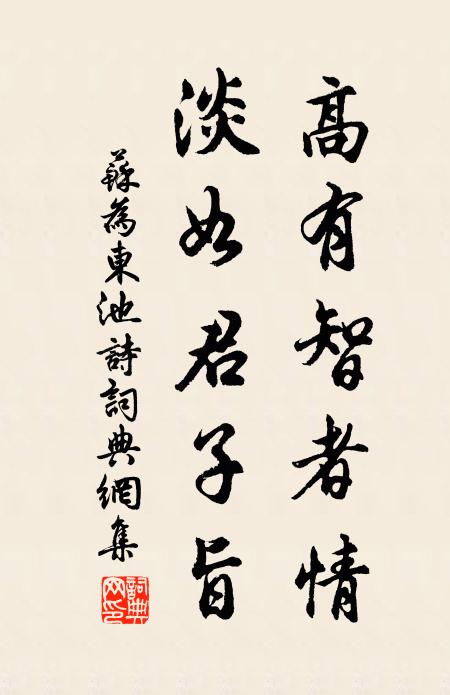 高有智者情
淡如君子旨
蘇為東池詩詞典網集
詞典網印